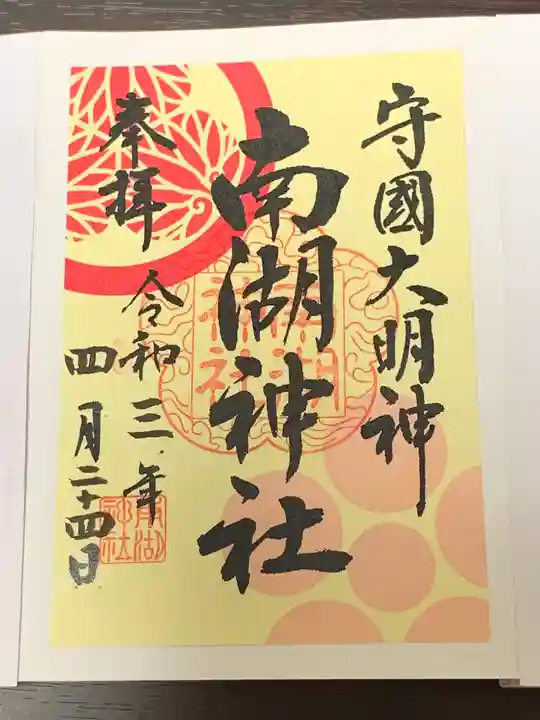 守國大明神
南湖神社
奉拝
令和三年
四月二十四日
南湖神社
南湖神社